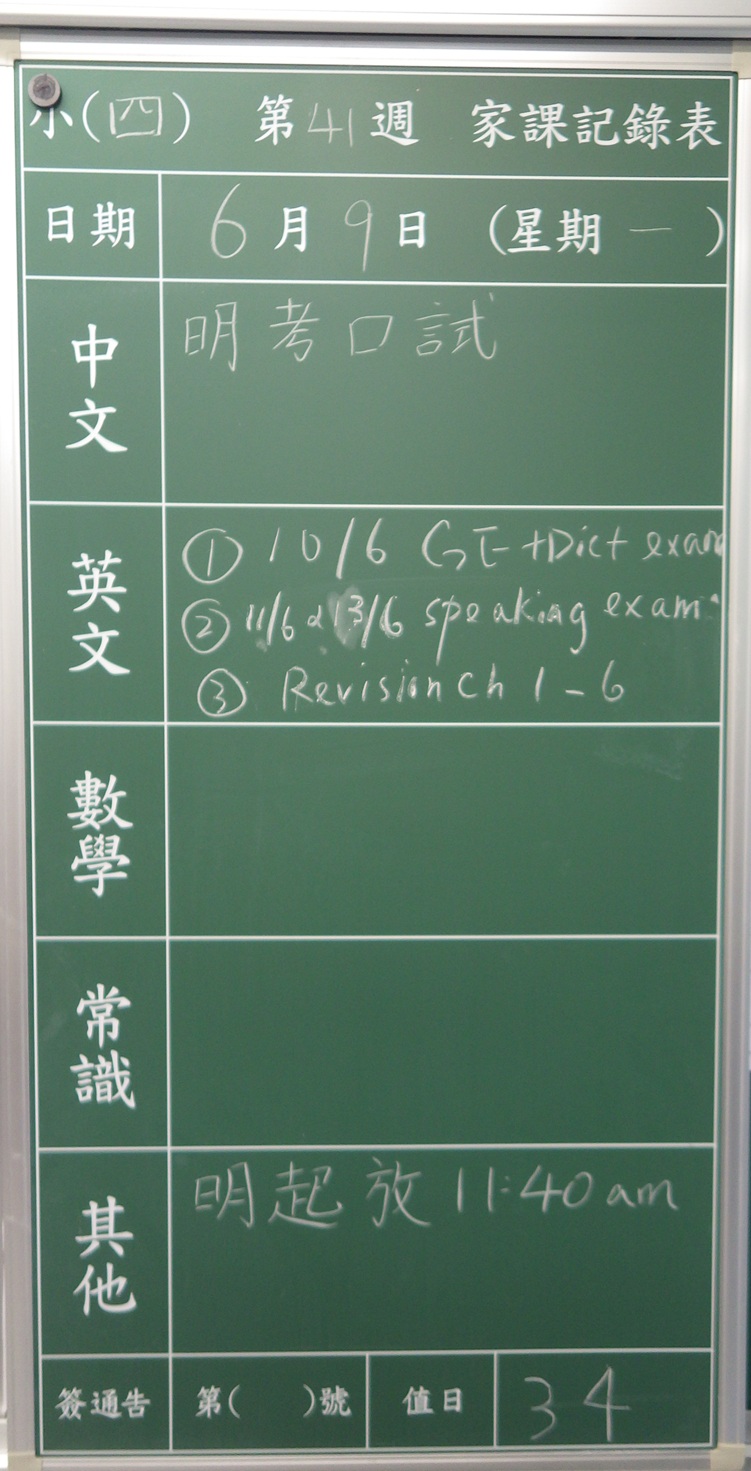 小(四) 第41週 家課記錄表
日期 6月9日 (星期一)
中文 明考口試
英文
① 10/6 GE+Dict exam
② 11/6 & 13/6 speaking exam
③ Revision Ch 1-6
數學
常識
其他 明起放 11:40am
簽通告 第( )號 值日 34